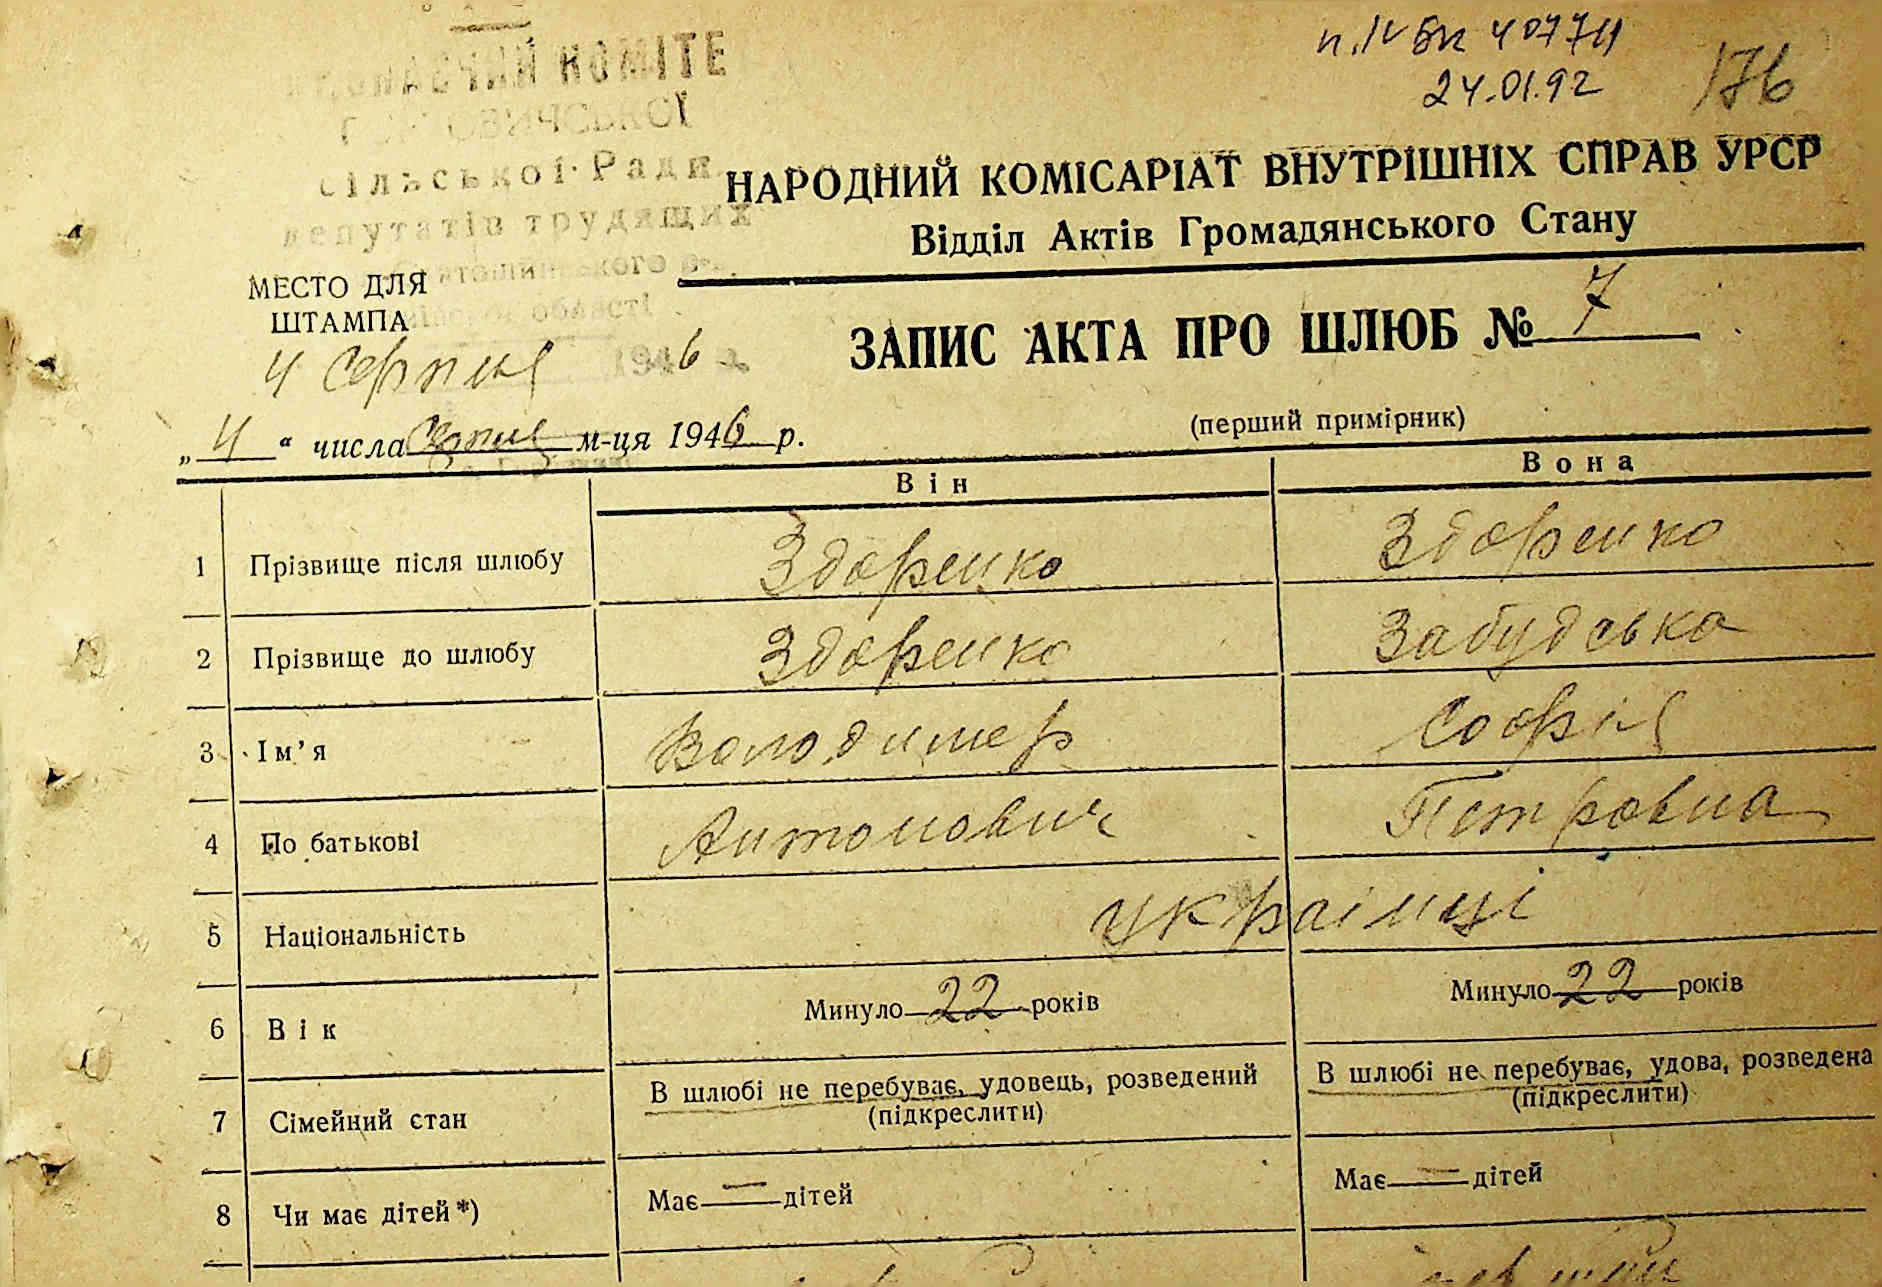 п. IV БК 407711
24.01.92
176
КОМІТЕ
сільської Ради
депутатів трудящих
області
НАРОДНИЙ КОМІСАРІАТ ВНУТРІШНІХ СПРАВ УРСР
Відділ Актів Громадянського Стану
МЕСТО ДЛЯ
ШТАМПА
4 серпня 1946 р.
ЗАПИС АКТА ПРО ШЛЮБ № 7
„ 4 “ числа серпня м-ця 1946 р.
(перший примірник)
Він Вона
1 Прізвище після шлюбу Здоренко Здоренко
2 Прізвище до шлюбу Здоренко Забудська
3 Ім’я Володимер Софія
4 По батькові Антонович Петровна
5 Національність українці
6 Вік Минуло 22 років Минуло 22 років
7 Сімейний стан В шлюбі не перебуває, удовець, розведений В шлюбі не перебуває, удова, розведена
(підкреслити) (підкреслити)
8 Чи має дітей *) Має — дітей Має — дітей